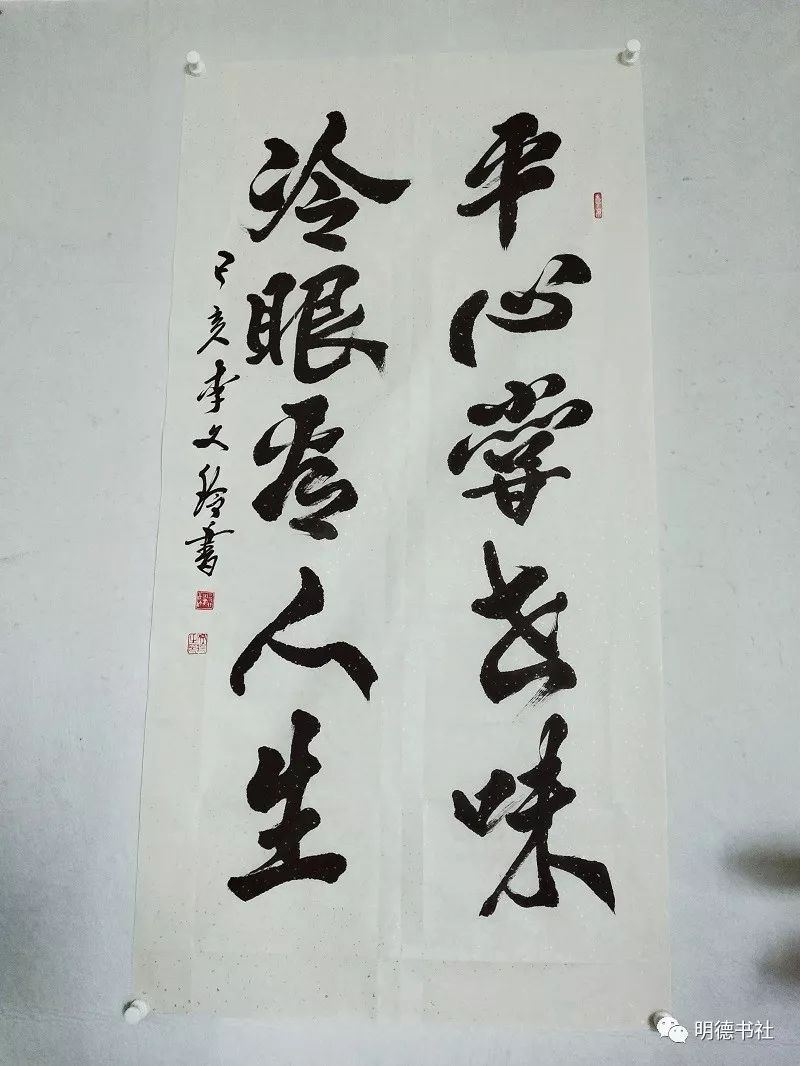 平心尝世味
冷眼看人生
己亥李文
书
明德书社